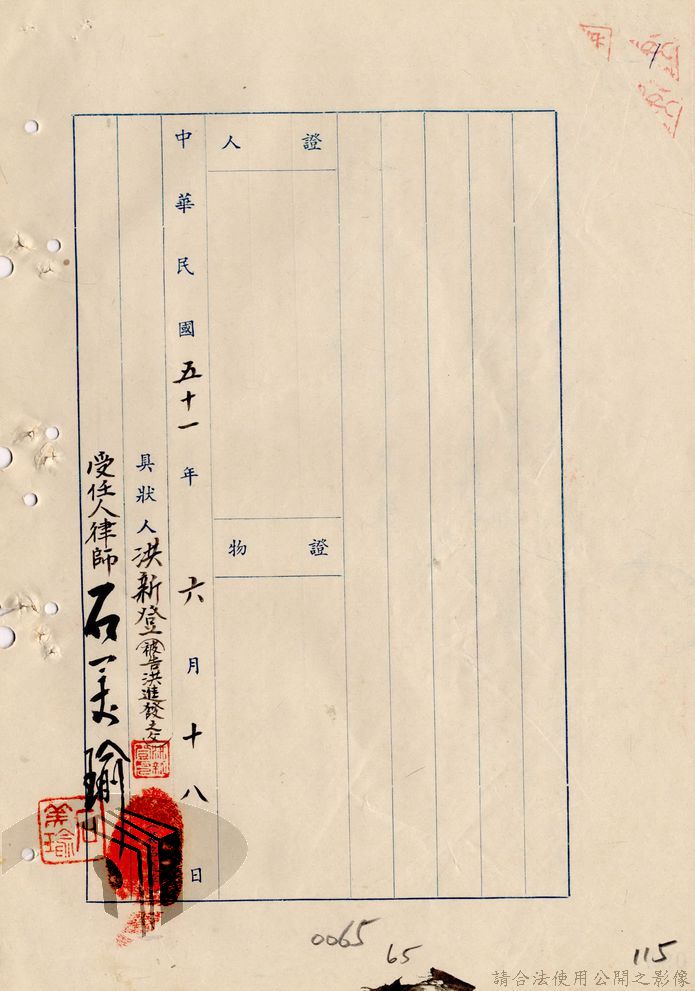 證人
證物
中華民國五十一年六月十八日
具狀人洪新登(被告洪進發之父)
受任人律師石美瑜
石美瑜
0065
65
115
請合法使用公開之影像